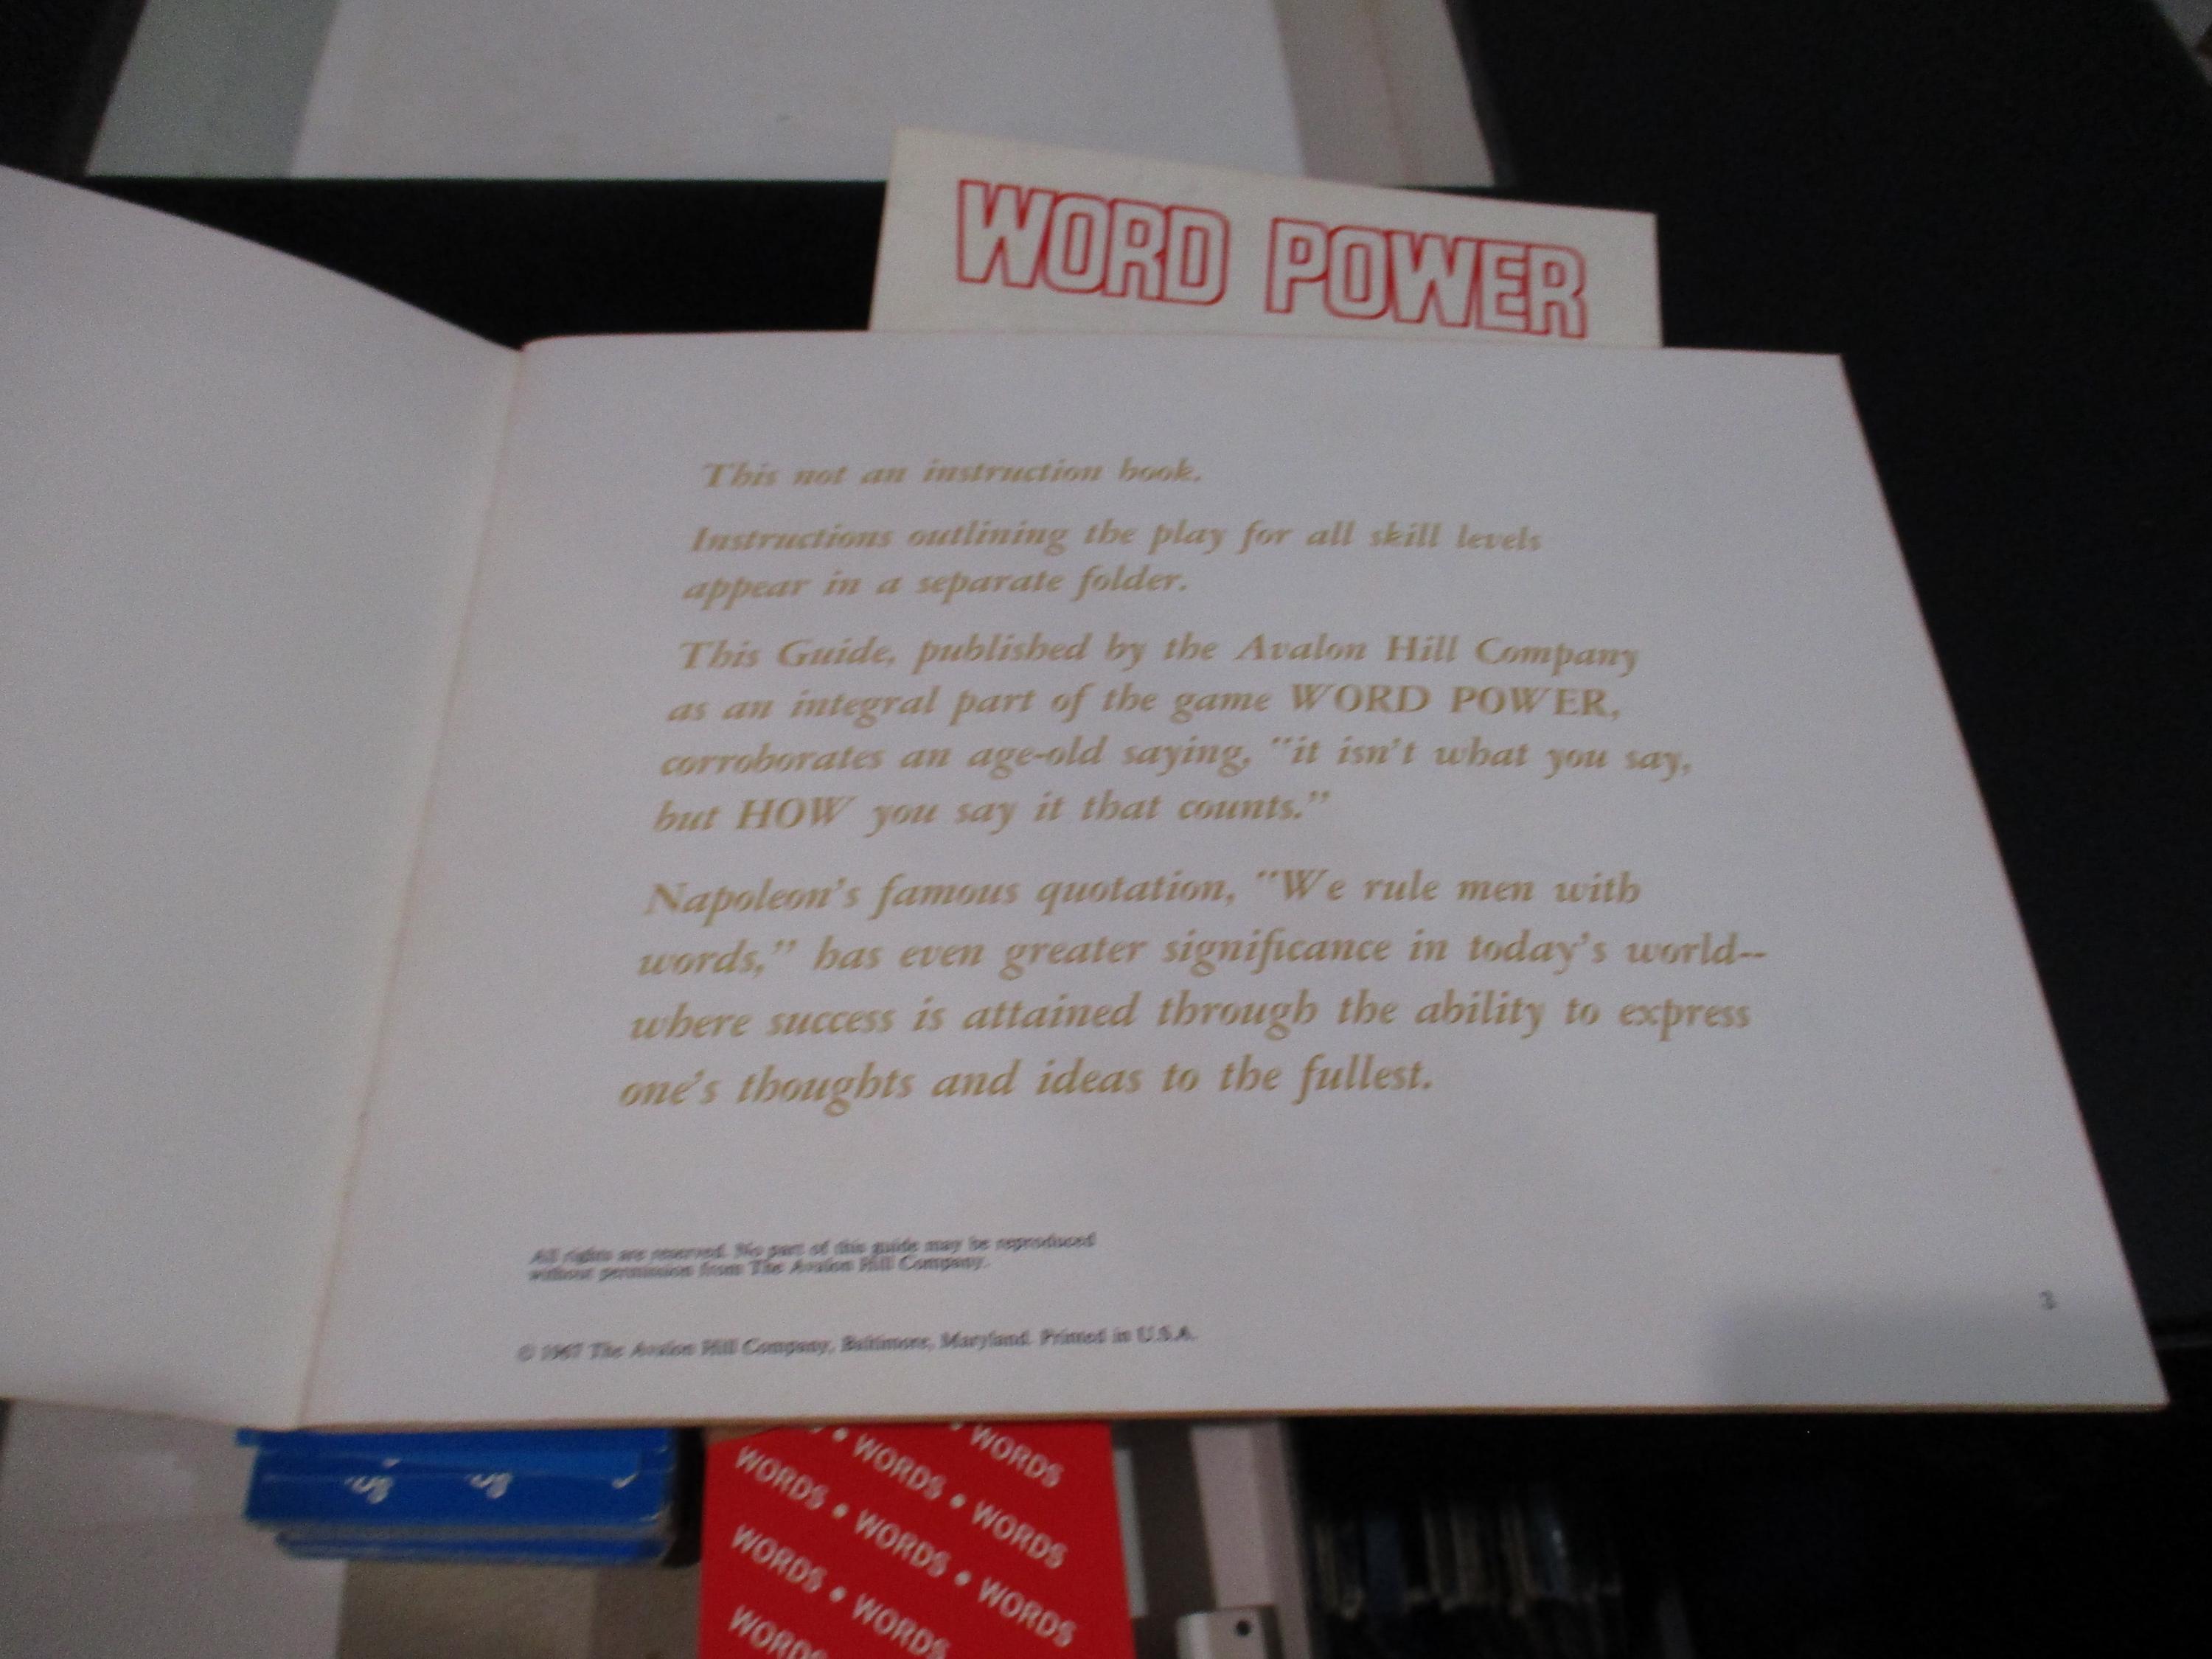 WORD POWER
This not an instruction book.
Instructions outlining the play for all skill levels
appear in a separate folder.
This Guide, published by the Avalon Hill Company
as an integral part of the game WORD POWER,
corroborates an age-old saying, "it isn't what you say,
but HOW you say it that counts."
Napoleon's famous quotation, "We rule men with
words," has even greater significance in today's world--
where success is attained through the ability to express
one's thoughts and ideas to the fullest.
All rights are reserved. No part of this guide may be reproduced
without permission from The Avalon Hill Company.
© 1967 The Avalon Hill Company, Baltimore, Maryland. Printed in U.S.A.
3
WORDS
WORDS • WORDS
WORDS • WORDS • WORDS
WORDS • WORDS
WORDS